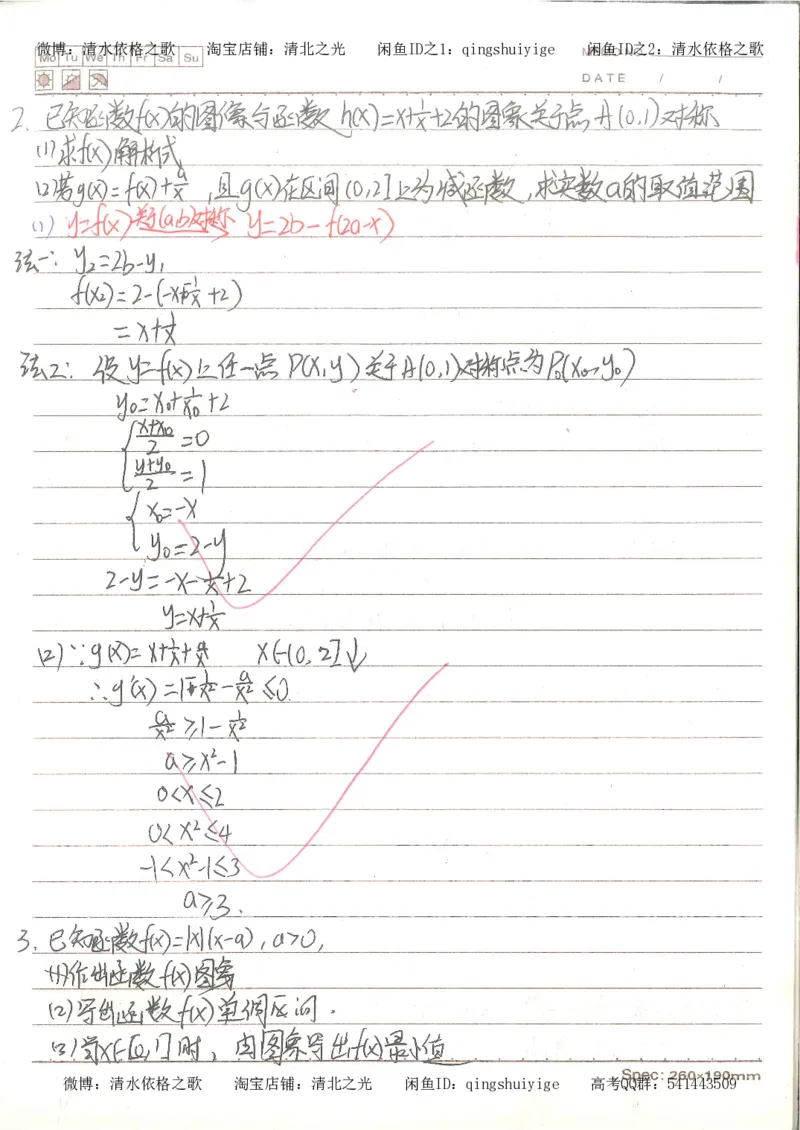 微博：清水依格之歌 淘宝店铺：清北之光 闲鱼ID之1：qingshuiyige 闲鱼ID之2：清水依格之歌
Mo Tu We Th Fr Sa Su
DATE / /
2. 已知函数f(x)的图像与函数h(x)=x+1/x+2的图象关于点A(0,1)对称
(1)求f(x)解析式
(2)若g(x)=f(x)+a/x,且g(x)在区间(0,2]上为减函数,求实数a的取值范围
(1) y=f(x)关于(a,b)对称 y=2b-f(2a-x)
法一: y₂=2b-y₁
f(x₂)=2-(-x-1/x+2)
=x+1/x
法2: 设y=f(x)上任一点P(x,y)关于A(0,1)对称点为P₀(x₀,y₀)
y₀=x₀+1/x₀+2
{(x+x₀)/2=0
(y+y₀)/2=1
{x₀=-x
y₀=2-y
2-y=-x-1/x+2
y=x+1/x
(2)∵g(x)=x+1/x+a/x x∈(0,2]↓
∴g'(x)=1-1/x²-a/x²≤0
a/x²≥1-1/x²
a≥x²-1
0<x≤2
0<x²≤4
-1<x²-1≤3
a≥3.
3. 已知函数f(x)=|x|(x-a),a>0,
(1)作出函数f(x)图象
(2)写出函数f(x)单调区间.
(3)当x∈[0,1]时,由图象写出f(x)最小值
Spec: 260×190mm
微博：清水依格之歌 淘宝店铺：清北之光 闲鱼ID：qingshuiyige 高考QQ群：541443509